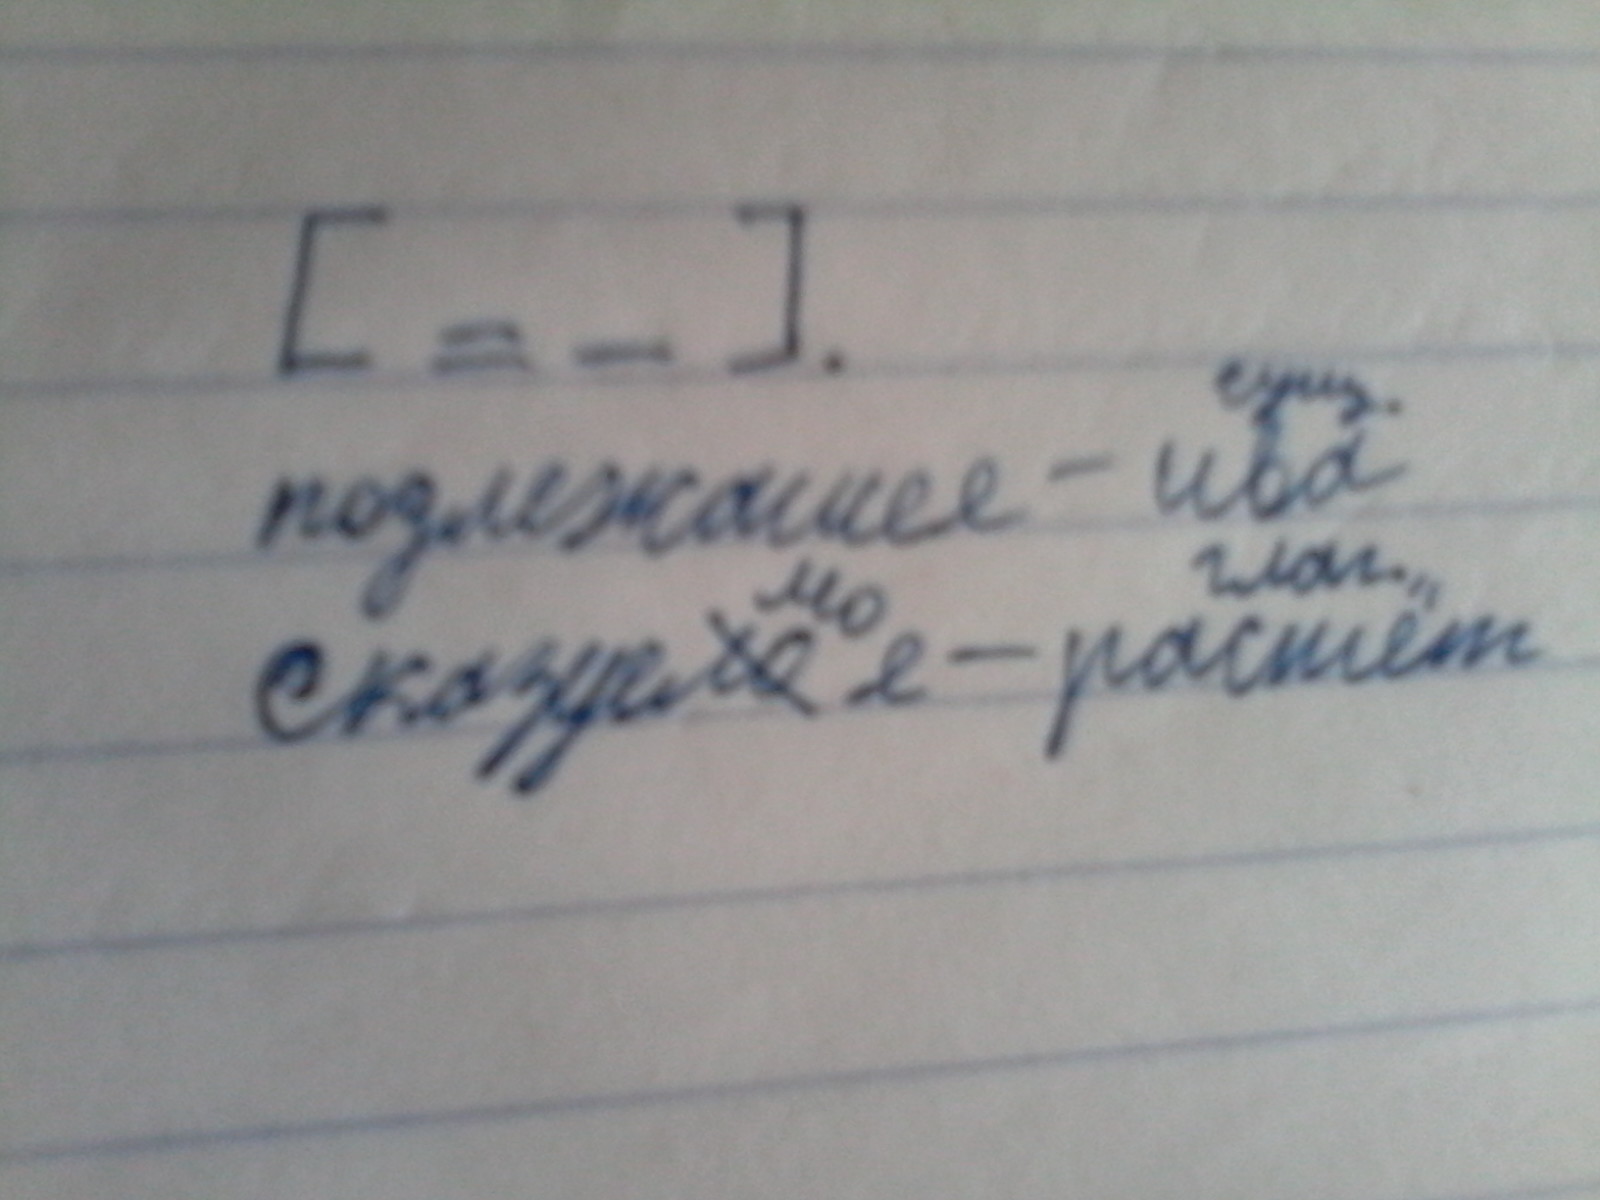 [ = – ].
сущ.
подлежащее – ива
мо глаг.
сказуемое – растёт